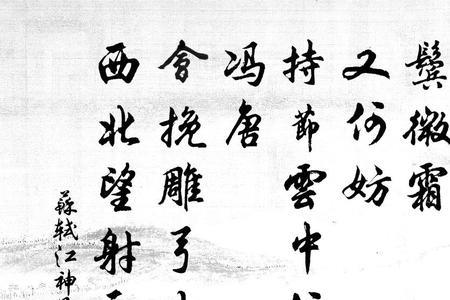 鬓微霜
又何妨
持节云中
冯唐
会挽雕弓
西北望射
苏轼江神